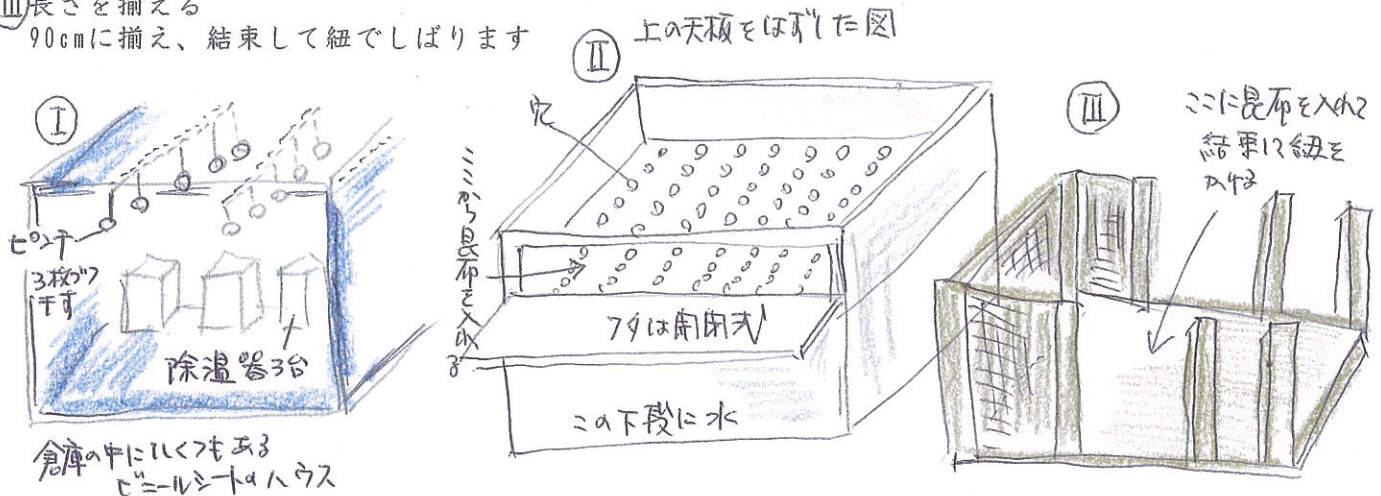 Ⅲ長さを揃える
90cmに揃え、結束して紐でしばります
Ⅰ
ピンチ
3枚づつ
干す
除湿器3台
倉庫の中にいくつもある
ビニールシートのハウス
Ⅱ
上の天板をはずした図
穴
ここから昆布を入れる
フタは開閉式
この下段に水
Ⅲ
ここに昆布を入れて
結束して紐を
かける